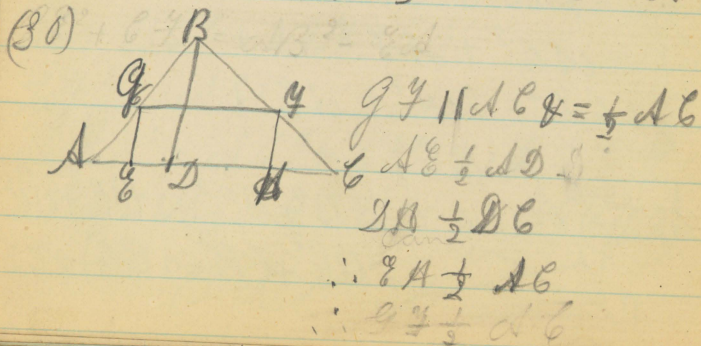 (30)
B
G F
A E D H C
G F || A C & = 1/2 A C
A E 1/2 A D
D H 1/2 D C
∴ E H 1/2 A C
∴ G F 1/2 A C